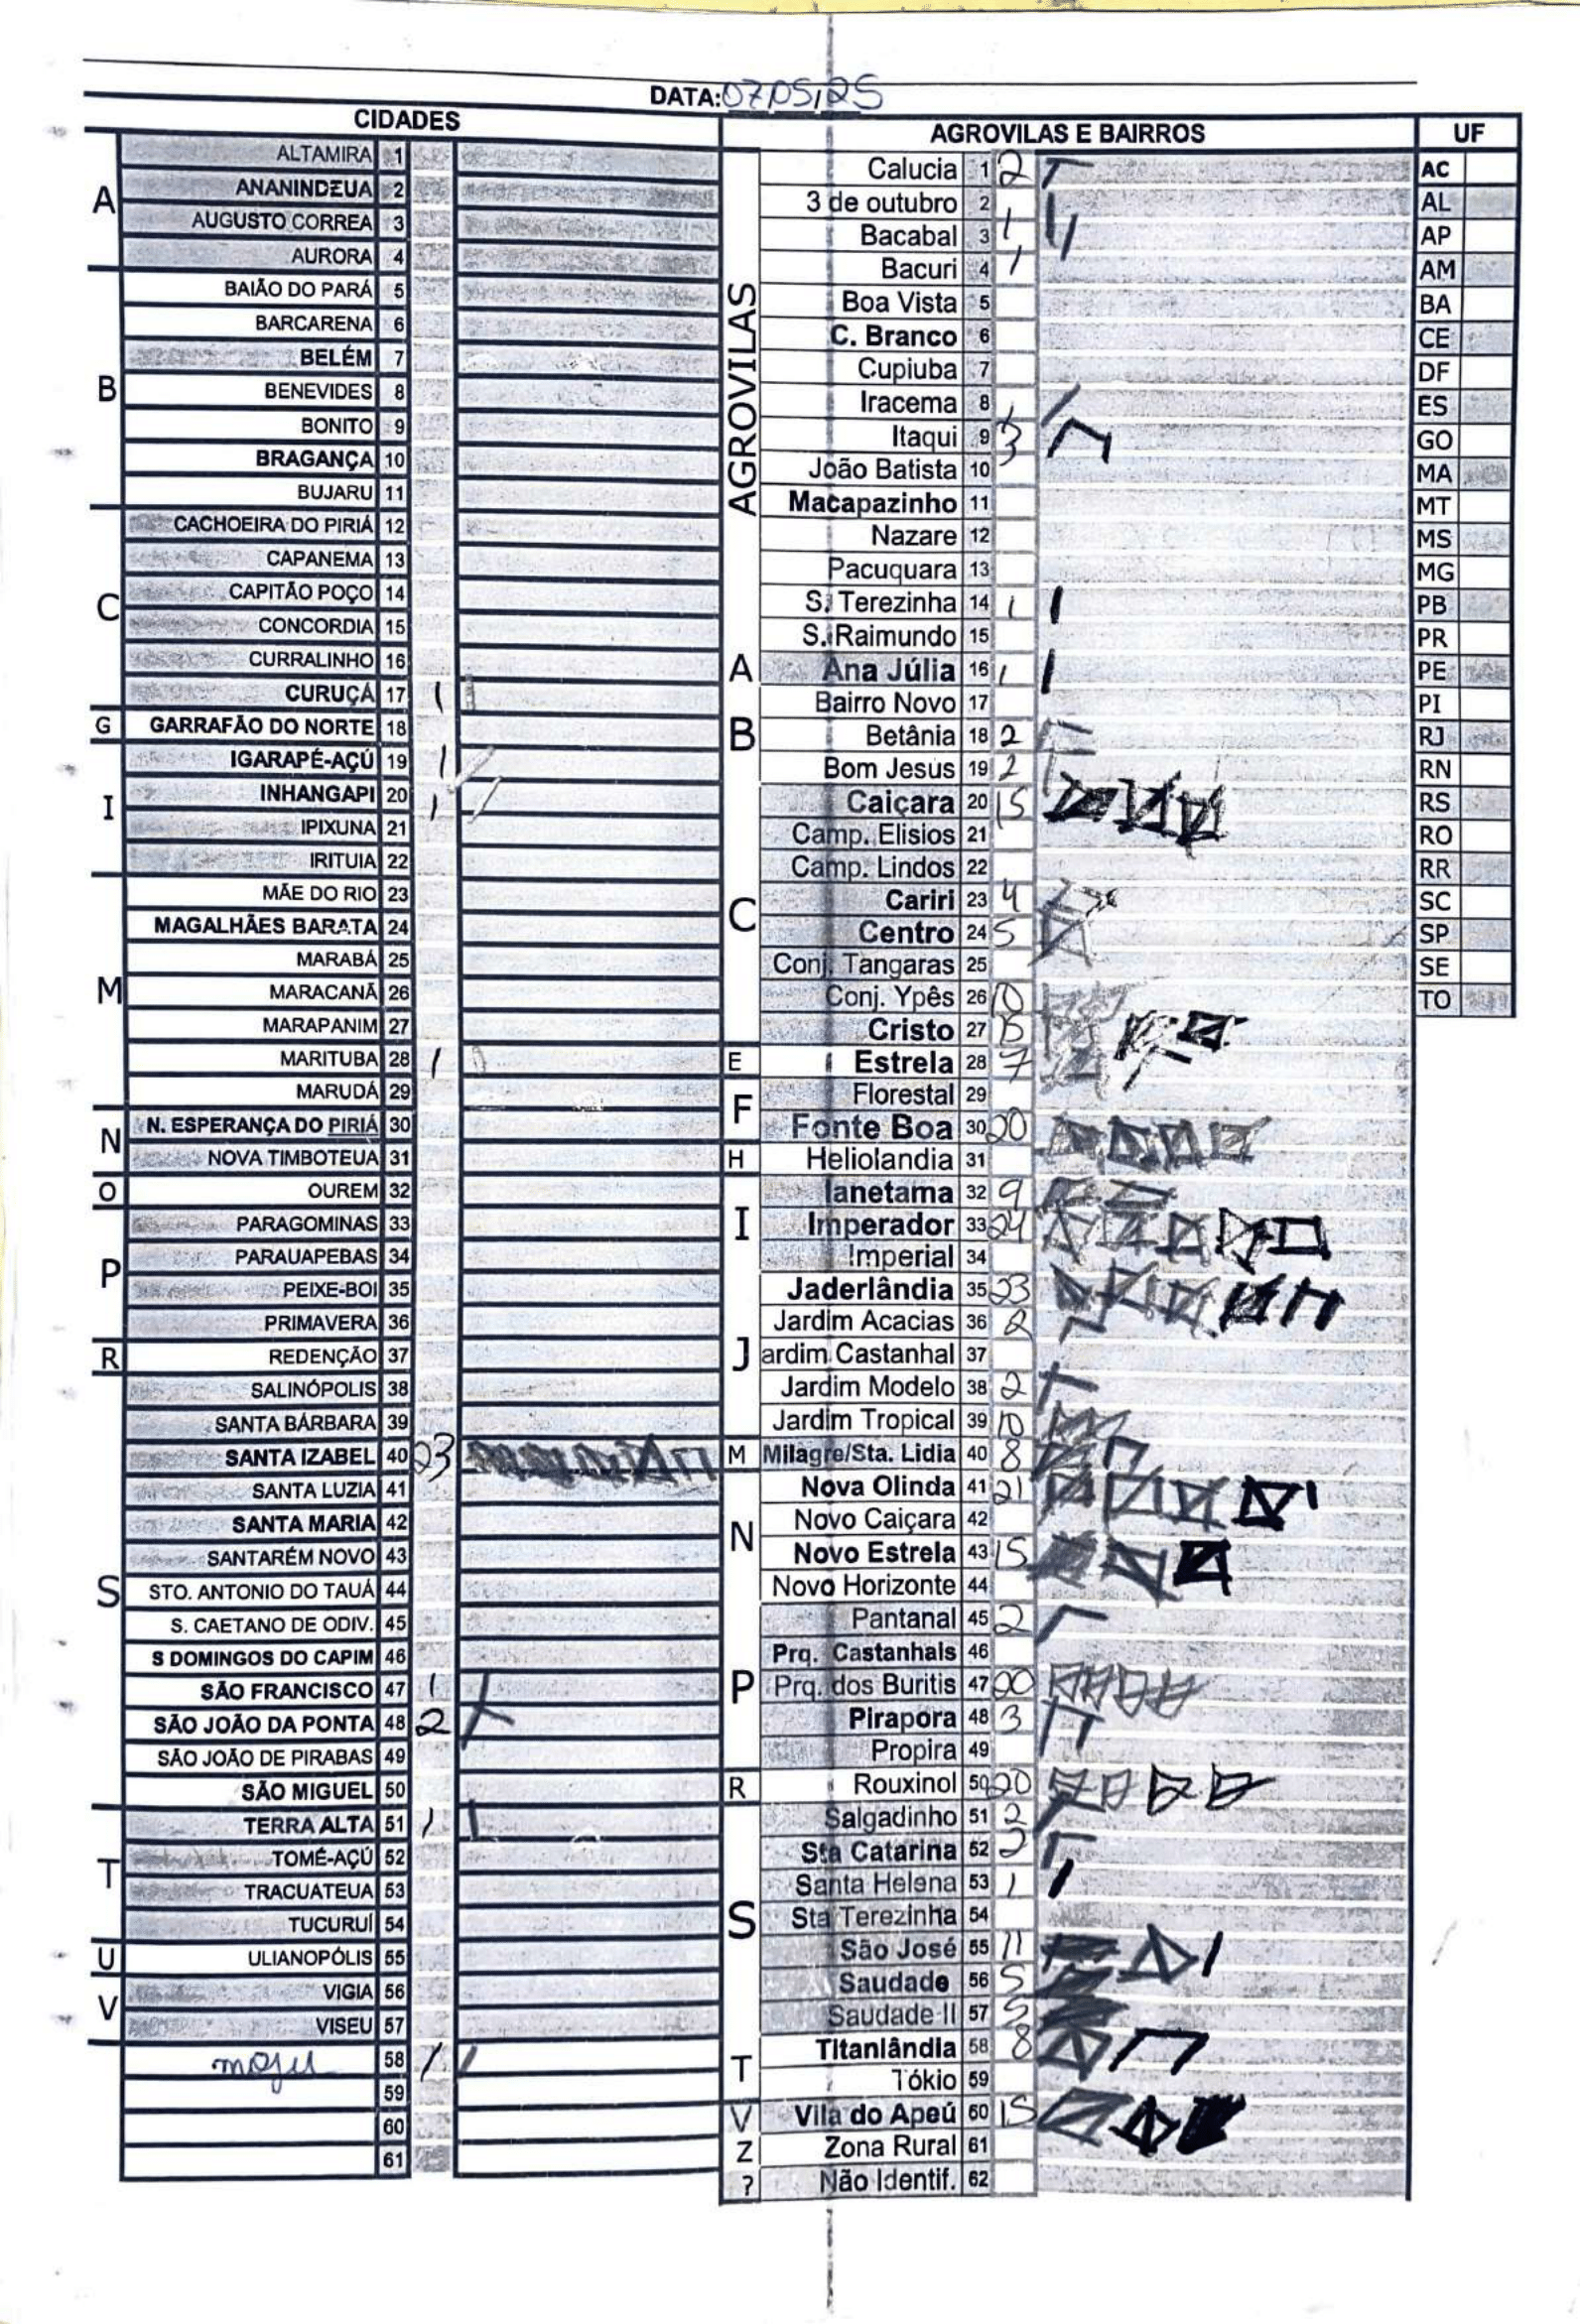 DATA: 07/05/25
CIDADES
A
ALTAMIRA 1
ANANINDEUA 2
AUGUSTO CORREA 3
AURORA 4
B
BAIÃO DO PARÁ 5
BARCARENA 6
BELÉM 7
BENEVIDES 8
BONITO 9
BRAGANÇA 10
BUJARU 11
C
CACHOEIRA DO PIRIÁ 12
CAPANEMA 13
CAPITÃO POÇO 14
CONCORDIA 15
CURRALINHO 16
CURUÇÁ 17 1
G
GARRAFÃO DO NORTE 18
I
IGARAPÉ-AÇÚ 19 1
INHANGAPI 20 1
IPIXUNA 21
IRITUIA 22
M
MÃE DO RIO 23
MAGALHÃES BARATA 24
MARABÁ 25
MARACANÃ 26
MARAPANIM 27
MARITUBA 28 1
MARUDÁ 29
N
N. ESPERANÇA DO PIRIÁ 30
NOVA TIMBOTEUA 31
O
OUREM 32
P
PARAGOMINAS 33
PARAUAPEBAS 34
PEIXE-BOI 35
PRIMAVERA 36
R
REDENÇÃO 37
S
SALINÓPOLIS 38
SANTA BÁRBARA 39
SANTA IZABEL 40 23
SANTA LUZIA 41
SANTA MARIA 42
SANTARÉM NOVO 43
STO. ANTONIO DO TAUÁ 44
S. CAETANO DE ODIV. 45
S DOMINGOS DO CAPIM 46
SÃO FRANCISCO 47 1
SÃO JOÃO DA PONTA 48 2
SÃO JOÃO DE PIRABAS 49
SÃO MIGUEL 50
T
TERRA ALTA 51 1
TOMÉ-AÇÚ 52
TRACUATEUA 53
TUCURUÍ 54
U
ULIANOPÓLIS 55
V
VIGIA 56
VISEU 57
moju 58 1
59
60
61
AGROVILAS E BAIRROS
AGROVILAS
Calucia 1 2
3 de outubro 2
Bacabal 3 1
Bacuri 4 1
Boa Vista 5
C. Branco 6
Cupiuba 7
Iracema 8 1
Itaqui 9 3
João Batista 10
Macapazinho 11
Nazare 12
Pacuquara 13
S. Terezinha 14 1
S. Raimundo 15
A
Ana Júlia 16 1
Bairro Novo 17
B
Betânia 18 2
Bom Jesus 19 2
C
Caiçara 20 15
Camp. Elisios 21
Camp. Lindos 22
Cariri 23 4
Centro 24 5
Conj. Tangaras 25
Conj. Ypês 26 10
Cristo 27 15
E
Estrela 28 7
F
Florestal 29
Fonte Boa 30 20
H
Heliolandia 31
I
Ianetama 32 9
Imperador 33 24
Imperial 34
J
Jaderlândia 35 23
Jardim Acacias 36 2
ardim Castanhal 37
Jardim Modelo 38 2
Jardim Tropical 39 10
M
Milagre/Sta. Lidia 40 8
N
Nova Olinda 41 21
Novo Caiçara 42
Novo Estrela 43 15
Novo Horizonte 44
P
Pantanal 45 2
Prq. Castanhais 46
Prq. dos Buritis 47 20
Pirapora 48 3
Propira 49
R
Rouxinol 50 20
S
Salgadinho 51 2
Sta Catarina 52 2
Santa Helena 53 1
Sta Terezinha 54
São José 55 11
Saudade 56 5
Saudade II 57 5
T
Titanlândia 58 8
Tókio 59
V
Vila do Apeú 60 15
Z
Zona Rural 61
?
Não Identif. 62
UF
AC
AL
AP
AM
BA
CE
DF
ES
GO
MA
MT
MS
MG
PB
PR
PE
PI
RJ
RN
RS
RO
RR
SC
SP
SE
TO